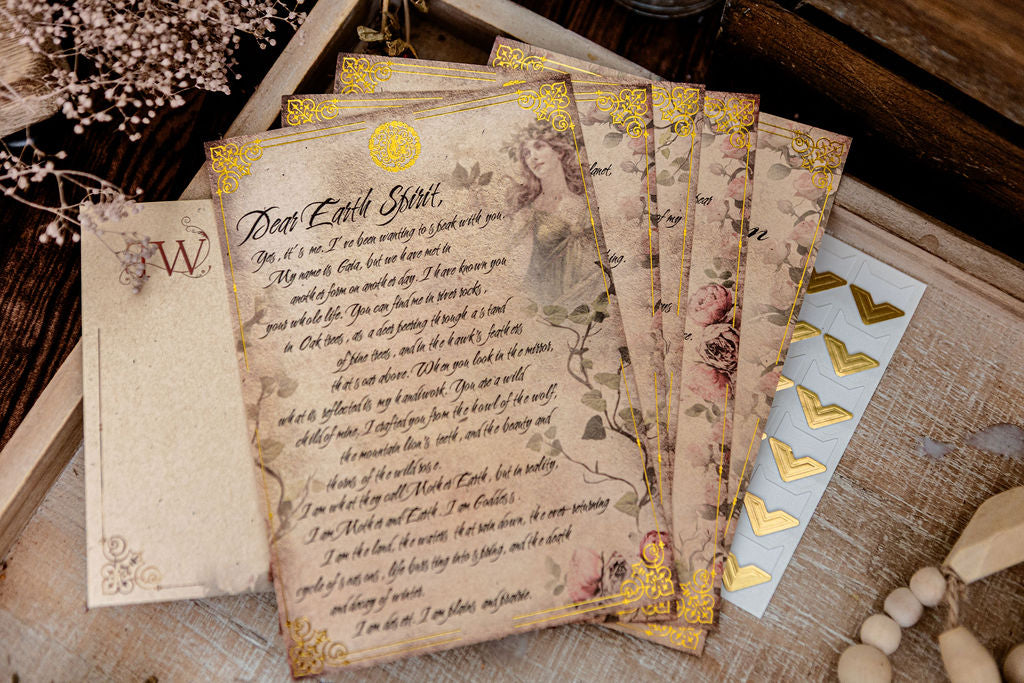 W
Dear Earth Spirit,
Yes, it's me. I've been wanting to speak with you.
My name is Gaia, but we have met in
another form on another day. I have known you
your whole life. You can find me in river rocks,
in Oak trees, as a deer peering through a stand
of pine trees, and in the hawk's feathers
that soars above. When you look in the mirror,
what is reflected is my handiwork. You are a wild
child of mine, I crafted you from the howl of the wolf,
the mountain lion's teeth, and the beauty and
thorns of the wild rose.
I am what they call Mother Earth, but in reality,
I am Mother and Earth. I am Goddess.
I am the land, the waters that rain down, the ever-returning
cycle of seasons, life bursting into spring, and the death
and decay of winter.
I am desert. I am plains and prairie.
planet,
of my